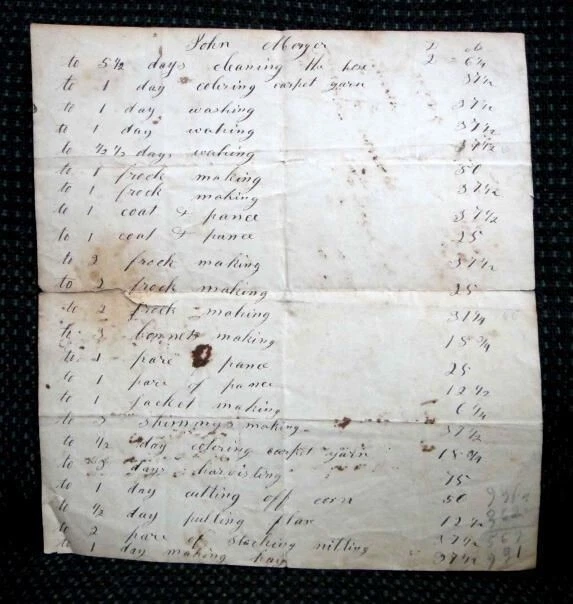 John D cts
to 5 1/2 days cleaning the hose 2 6 1/4
to 1 day coloring carpet yarn 37 1/2
to 1 day washing 37 1/2
to 1 day waking 37 1/2
to 1/2 days waking 37 1/2
to 1 frock making 50
to 1 frock making 37 1/2
to 1 coat & pance 37 1/2
to 1 coat & pance 25
to 2 frock making 37 1/2
to 2 frock making 25
to 2 frock making 31 1/4
to 3 bonnets making 18 3/4
to 1 pare pance 25
to 1 pare of pance 12 1/2
to 1 jacket making 6 1/4
to 3 making 37 1/2
to 1/2 day coloring carpet yarn 18 3/4
to 3 days harvisting 75
to 1 day cutting off corn 50
to 1/2 day pulling flax 12 1/2
to 2 pare of stocking nitting 37 1/2
to 1 day making hay 37 1/2